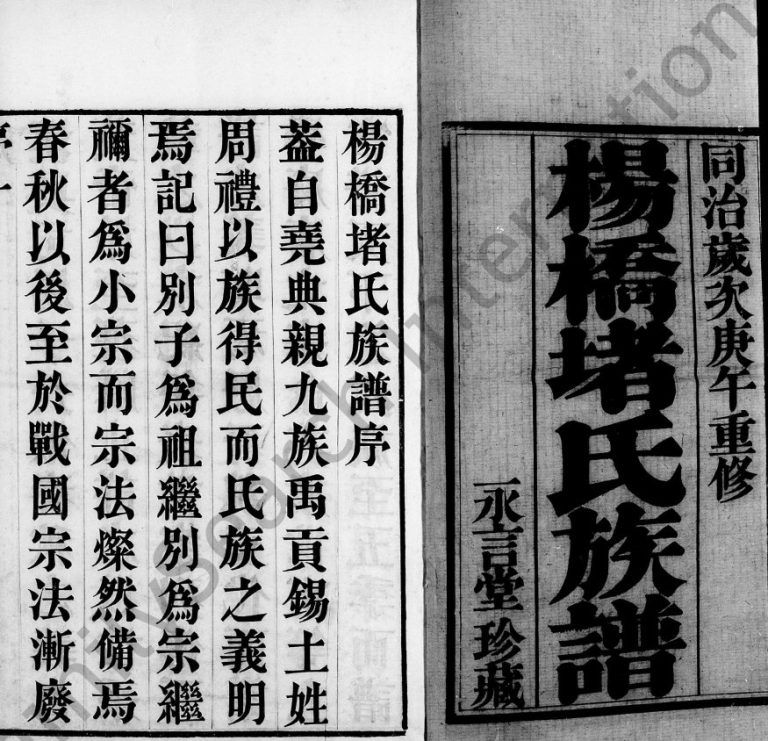 同治歲次庚午重修
楊橋堵氏族譜
永言堂珍藏
楊橋堵氏族譜序
葢自堯典親九族禹貢錫土姓
周禮以族得民而氏族之義明
焉記曰別子爲祖繼別爲宗繼
禰者爲小宗而宗法燦然備焉
春秋以後至於戰國宗法漸廢